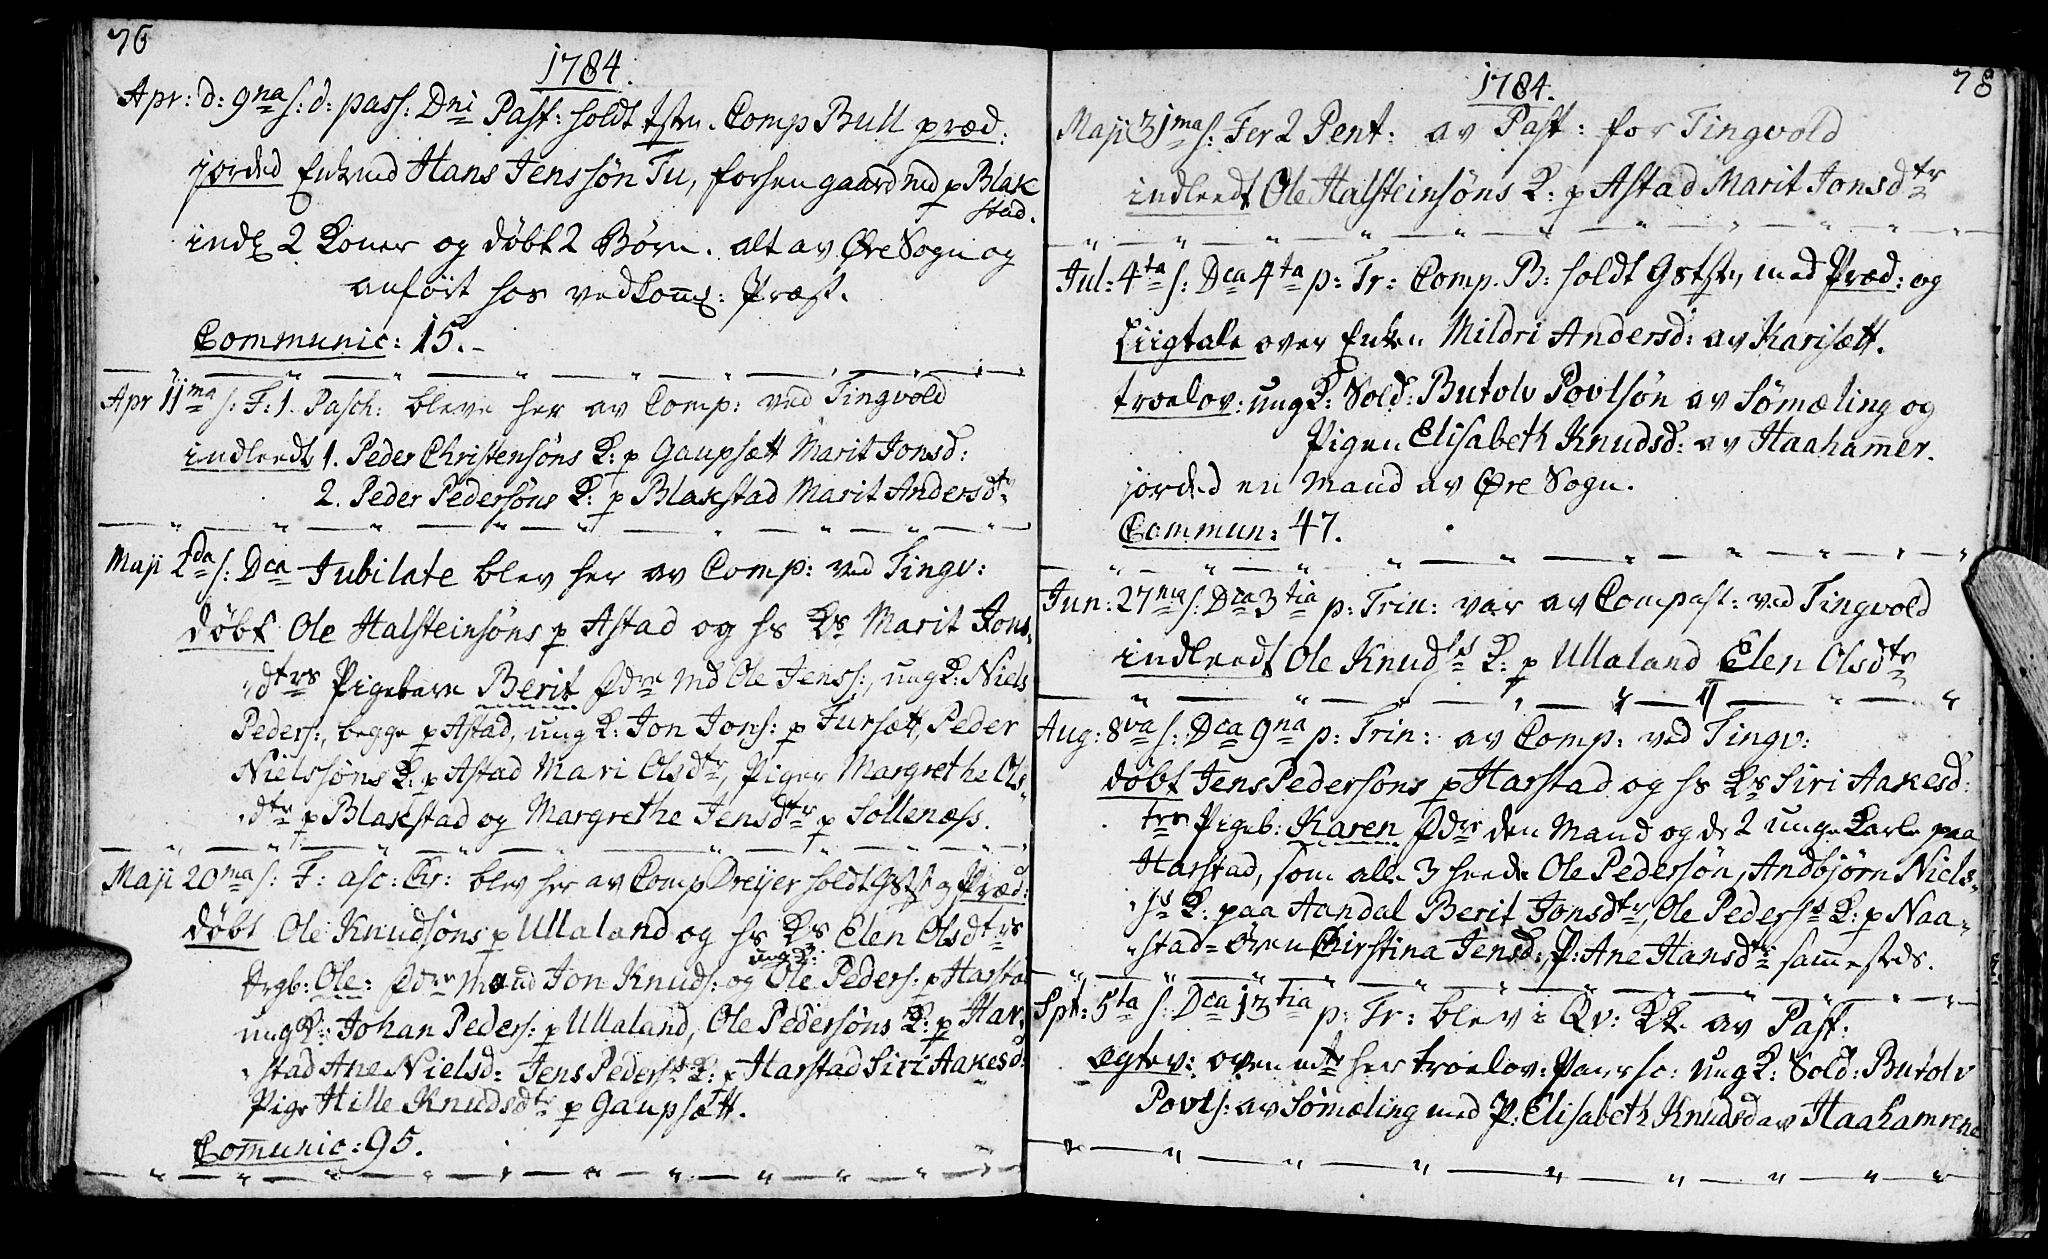 76
1784.
Apr: d: 9na s: d: pass: Dni Past: holdt tstn. Comp Bull præd:
jorded Enkemd Hans Jenssön Tu, forhen gaard Md p Blak
stad.
indl 2 Koner og döbt 2 Börn. alt av Øre Sogn og
anfört hos vedkom: Præst.
Communic: 15.
Apr 11ma s: F: 1. Pasch: bleve her av Comp: ved Tingvold
indleedt 1. Peder Christensöns K: p Gaupsætt Marit Jonsd:
2. Peder Pedersöns K: p Blakstad Marit Andersdtr
Maji 2da s: Dca Jubilate blev her av Comp: ved Tingv:
döbt Ole Halsteinsöns p Astad og hs Ks Marit Jons-
dtrs Pigebarn Berit Fdre Md Ole Jenss:, ungK: Niels
Peders:, begge p Astad, ung K: Jon Jons: p Fursætt, Peder
Nielssöns K: p Astad Mari Olsdtr, Piger Margrethe Ols-
dtr p Blakstad og Margrethe Jensdtr p Sollenæss.
Maji 20ma s: F: asc: Chr: blev her av Comp Dreijer holdt Gstst og Præd:
döbt Ole Knudsöns p Ullaland og hs Ks Elen Olsdtrs
ung K:
Drgb: Ole: Fdre Mand Jon Knuds: og Ole Peders: p Harstad
ungK: Johan Peders: p Ullaland, Ole Pedersöns K: p Har-
stad Ane Nielsd: Jens Peders K: p Harstad Siri Aakesd:
Pige Hille Knudsdtr p Gaupsætt.
Comunic: 95.
1784.
78
Maji 31ma s: Fer 2 Pent: av Past: for Tingvold
indleedt Ole Halsteinsöns K: p Astad Marit Jonsdtr
Jul: 4ta s: Dca 4ta p: Tr: Comp. B: holdt Gstst, med Præd: og
Liigtale over Enken Mildri Andersd: av Karisætt.
troelov: ungK: Sold: Butolv Povlsön av Sömæling og
Pigen Elisabeth Knudsd: av Haahamer.
jorded en Mand av Øre Sogn.
Commun: 47.
Jun: 27ma s: Dca 3tia p: Trin: var av Compast: ved Tingvold
indleedt Ole Knuds K: p Ullaland Elen Olsdtr
Aug: 8va s: Dca 9na p: Trin: av Comp: ved Tingv:
döbt Jens Pedersöns p Harstad og hs Ks Siri Aakesd:
trs Pigeb: Karen Fdre den Mand og de 2 unge Karle paa
Harstad, som alle 3 heede Ole Pedersön, Andbjörn Niels-
ss K: paa Aandal Berit Jonsdtr, Ole Peders K: p Naa-
stad-Øren Chirstina Jensd:, P: Ane Hansdtr sammesteds.
Spt: 5ta s: Dca 13tia p: Tr: blev i Qv: Kk. av Past.
Ægtev: ovennte her troelov: Personer: ungK: Sold: Butolv
Povls: av Sömæling med P: Elisabeth Knudsd av Haahamrene